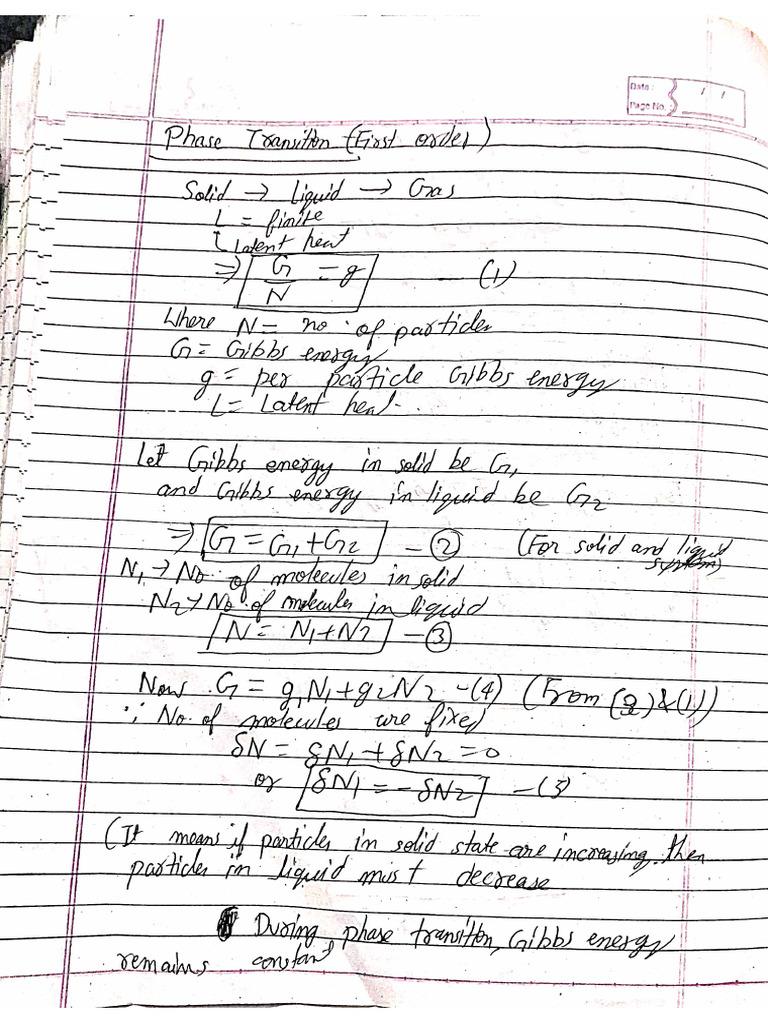 Date :    /    /
Page No.
Phase Transition (First order)
Solid → Liquid → Gas
L = finite
Latent heat
⇒ G/N = g — (1)
Where N = no. of particles
G = Gibbs energy
g = per particle Gibbs energy
L = Latent heat.
Let Gibbs energy in solid be G₁
and Gibbs energy in liquid be G₂
⇒ G = G₁ + G₂ — ② (For solid and liquid
system)
N₁ → No. of molecules in solid
N₂ → No. of molecules in liquid
N = N₁ + N₂ — ③
Now G = g₁N₁ + g₂N₂ — (4) (From (2) & (1))
∵ No. of molecules are fixed
δN = δN₁ + δN₂ = 0
or δN₁ = -δN₂ — (5)
(It means if particles in solid state are increasing then
particles in liquid must decrease
During phase transition, Gibbs energy
remains constant